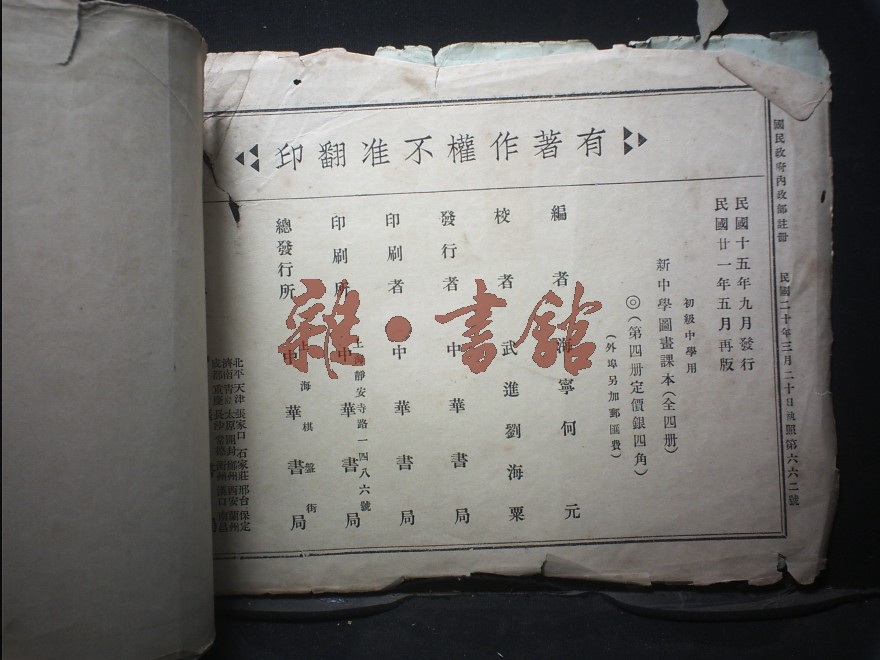 國民政府內政部註冊 民國二十年三月二十日執照第六六二號
有著作權不准翻印
民國十五年九月發行
民國廿一年五月再版
初級中學用
新中學圖畫課本(全四冊)
◎(第四册定價銀四角)
(外埠另加郵匯費)
編者 海寧何元
校者 武進劉海粟
發行者 中華書局
印刷者 中華書局
上海靜安寺路一四八六號
印刷所 中華書局
上海棋盤街
總發行所 中華書局
北平 天津 張家口 石家莊 邢台 保定
濟南 青島 太原 開封 鄭州 西安 蘭州
成都 重慶 長沙 常德 衡州 漢口 南昌
雜·書館